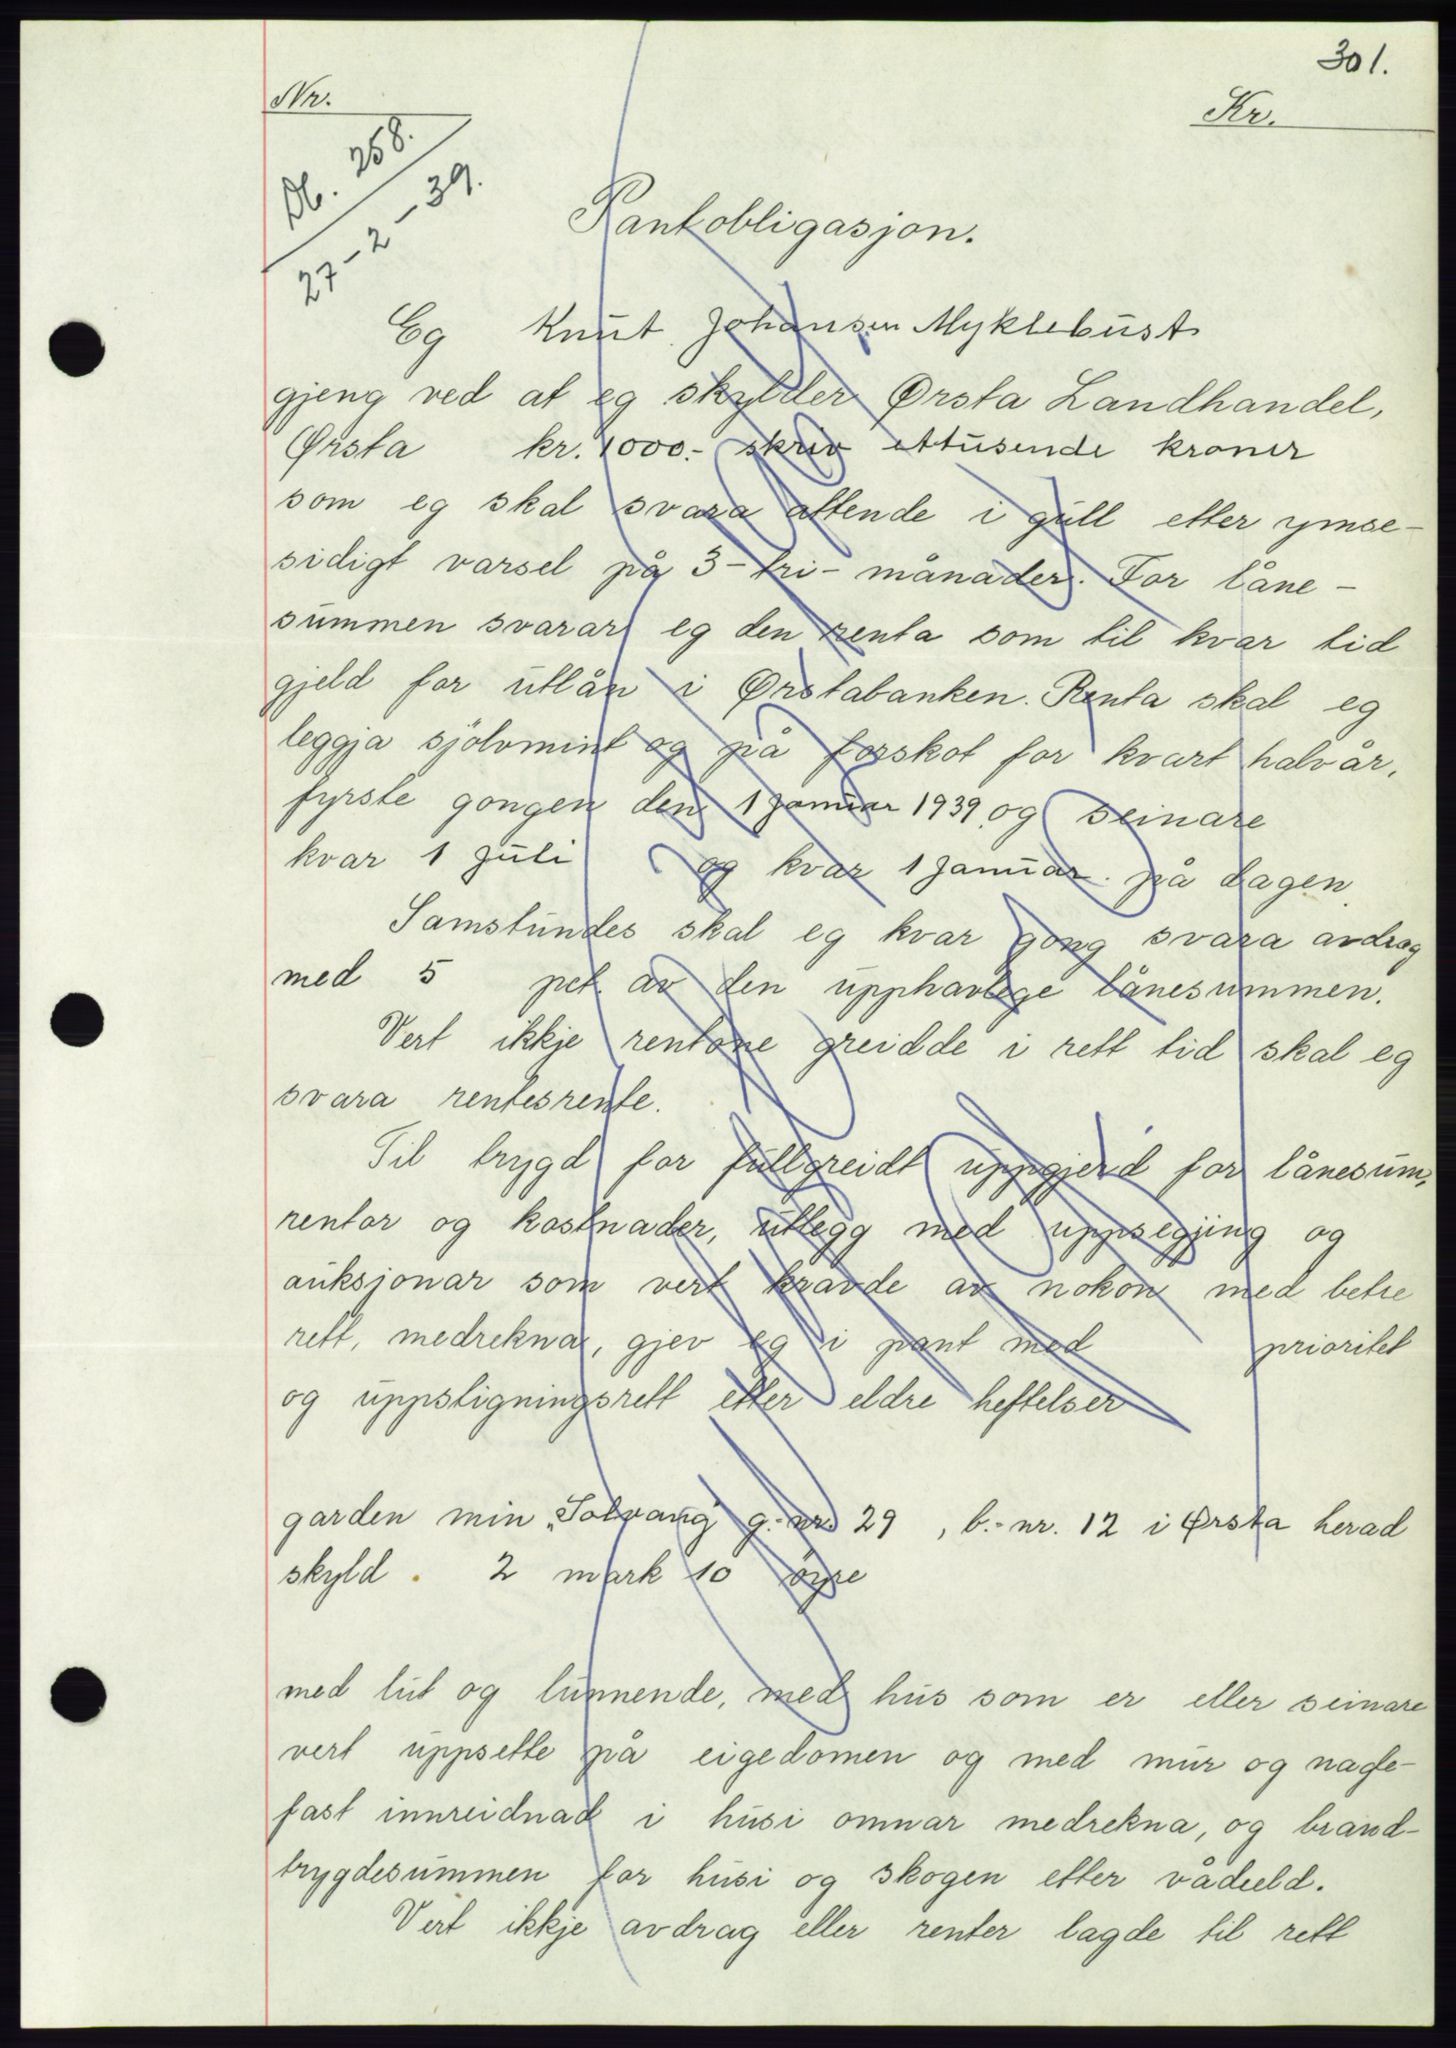 301.
Nr.
Kr.
Db. 258.
27-2-39.
Pantobligasjon.
Eg Knut Johansen Myklebust
gjeng ved at eg skylder Ørsta Landhandel,
Ørsta kr. 1000.- skriv ettusende kroner
som eg skal svara attende i gull etter ymse-
sidigt varsel på 3-tri- månader. For låne-
summen svarar eg den renta som til kvar tid
gjeld for utlån i Ørstabanken. Renta skal eg
leggja sjölvmint og på forskot for kvart halvår,
fyrste gongen den 1 januar 1939 og seinare
kvar 1 juli og kvar 1 januar på dagen.
Samstundes skal eg kvar gong svara avdrag
med 5 pct. av den upphavlege lånesummen.
Vert ikkje rentone greidde i rett tid skal eg
svara rentesrente.
Til trygd for fullgreidt uppgjerd for lånesum,
rentor og kostnader, utlegg med uppsegjing og
auksjonar som vert kravde av nokon med betre
rett, medrekna, gjev eg i pant med prioritet
og uppstigningsrett etter eldre heftelser
garden min „Solvang" g.-nr. 29, b.-nr. 12 i Ørsta herad
skyld. 2 mark 10 öyre
med lut og lunnende, med hus som er eller seinare
vert uppsette på eigedomen og med mur og nagle-
fast innreidnad i husi omnar medrekna, og brand-
trygdesummen for husi og skogen etter vådeeld.
Vert ikkje avdrag eller renter lagde til rett